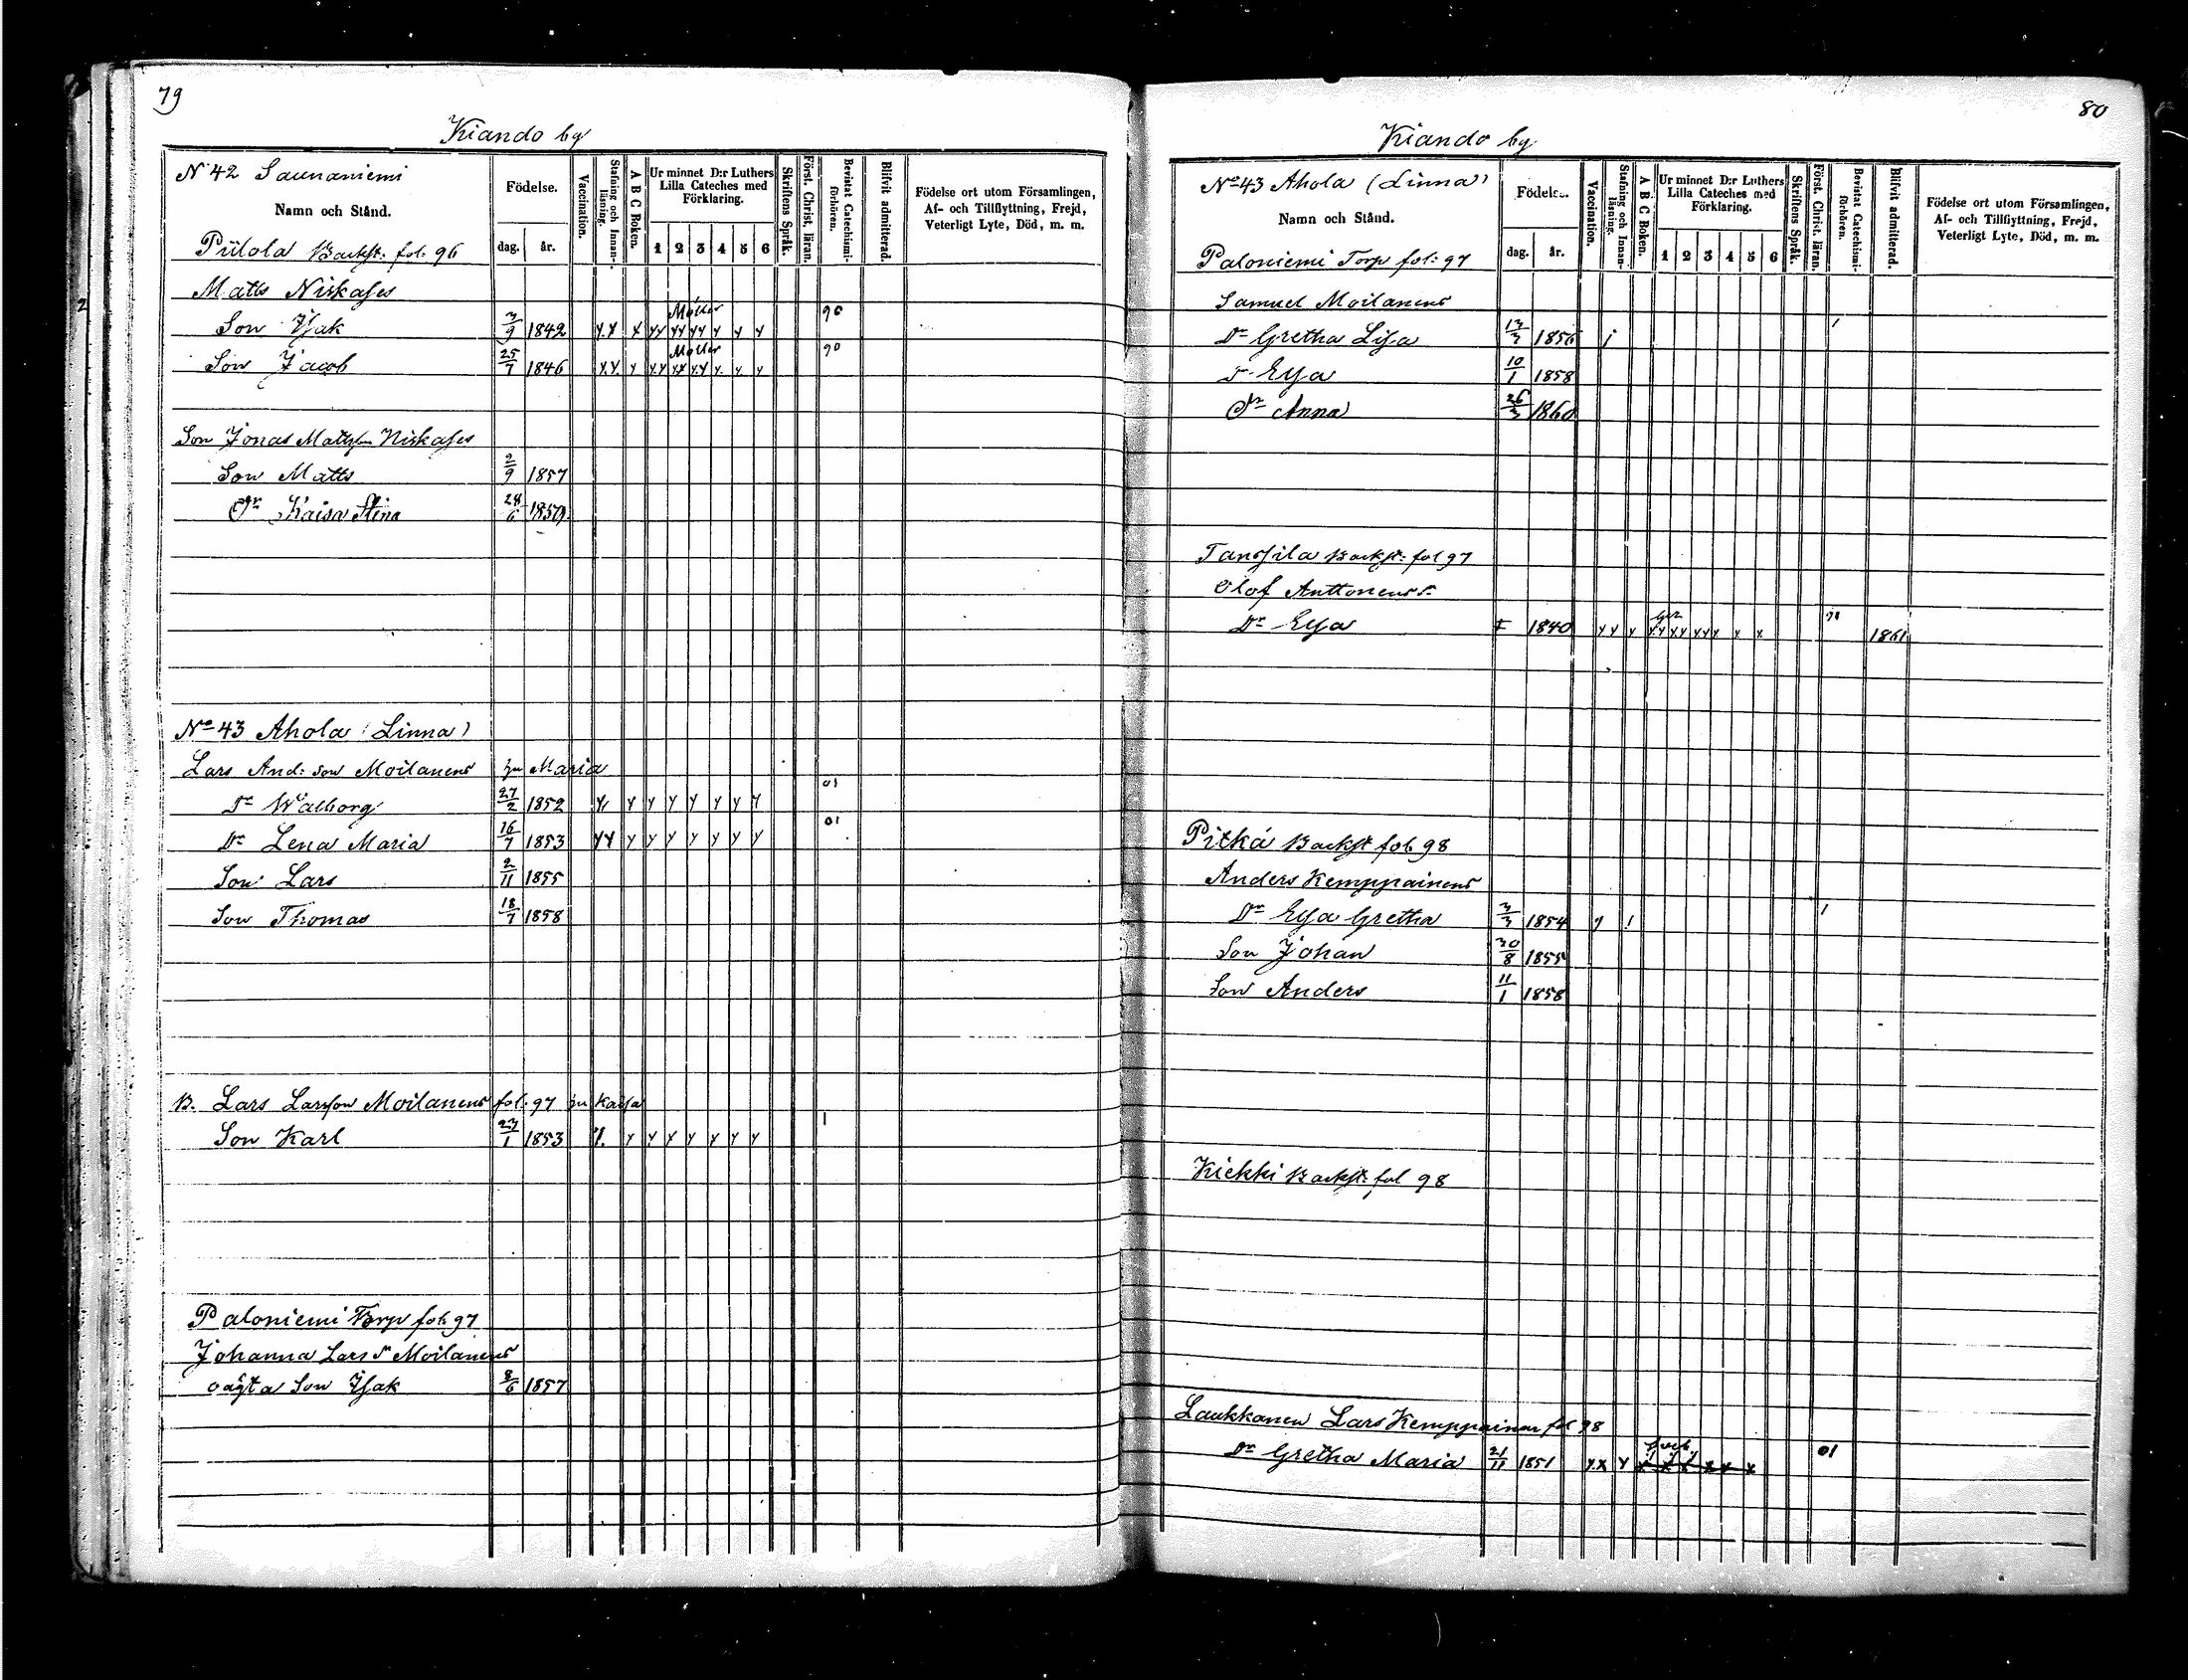 79
Kiando by
N 42 Saunaniemi
Namn och Stånd.
Födelse.
dag. år.
Vaccination.
Stafning och Innan-läsning.
A B C Boken.
Ur minnet D:r Luthers Lilla Cateches med Förklaring.
1 2 3 4 5 6
Skriftens Språk.
Först. Christ. läran.
Bevistat Catechismi-förhören.
Blifvit admitterad.
Födelse ort utom Församlingen,
Af- och Tillflyttning, Frejd,
Veterligt Lyte, Död, m. m.
Piilola Backst. fol. 96
Matts Niskases
Son Isak 3/9 1842 90
Son Jacob 25/7 1846 90
Son Jonas Matsson Niskases
Son Matts 2/9 1857
Dr Kaisa Stina 28/6 1859
No 43 Ahola (Linna)
Lars And: son Moilanens hu Maria
Dr Walborg 27/2 1852 01
Dr Lena Maria 16/7 1853 01
Son Lars 2/11 1855
Son Thomas 18/7 1858
B. Lars Larsson Moilanens fol. 97 hu Kaisa
Son Karl 23/1 1853 1
Paloniemi Torp fol. 97
Johanna Lars dr Moilanens
oägta Son Isak 8/6 1857
80
Kiando by
No 43 Ahola (Linna)
Namn och Stånd.
Födelse.
dag. år.
Vaccination.
Stafning och Innan-läsning.
A B C Boken.
Ur minnet D:r Luthers Lilla Cateches med Förklaring.
1 2 3 4 5 6
Skriftens Språk.
Först. Christ. läran.
Bevistat Catechismi-förhören.
Blifvit admitterad.
Födelse ort utom Församlingen,
Af- och Tillflyttning, Frejd,
Veterligt Lyte, Död, m. m.
Paloniemi Torp fol: 97
Samuel Moilanens
Dr Gretha Lisa 13/3 1856
Dr Eva 10/1 1858
Dr Anna 26/3 1860
Tanssila Backst: fol 97
Olof Anttonens
Dr Eva 1840 1861
Pitkä Backst fol. 98
Anders Kemppainens
Dr Eva Gretha 3/3 1854
Son Johan 30/8 1855
Son Anders 11/1 1858
Kiekki Backst: fol 98
Laukkanen Lars Kemppainen fol 98
Dr Gretha Maria 21/11 1851 01